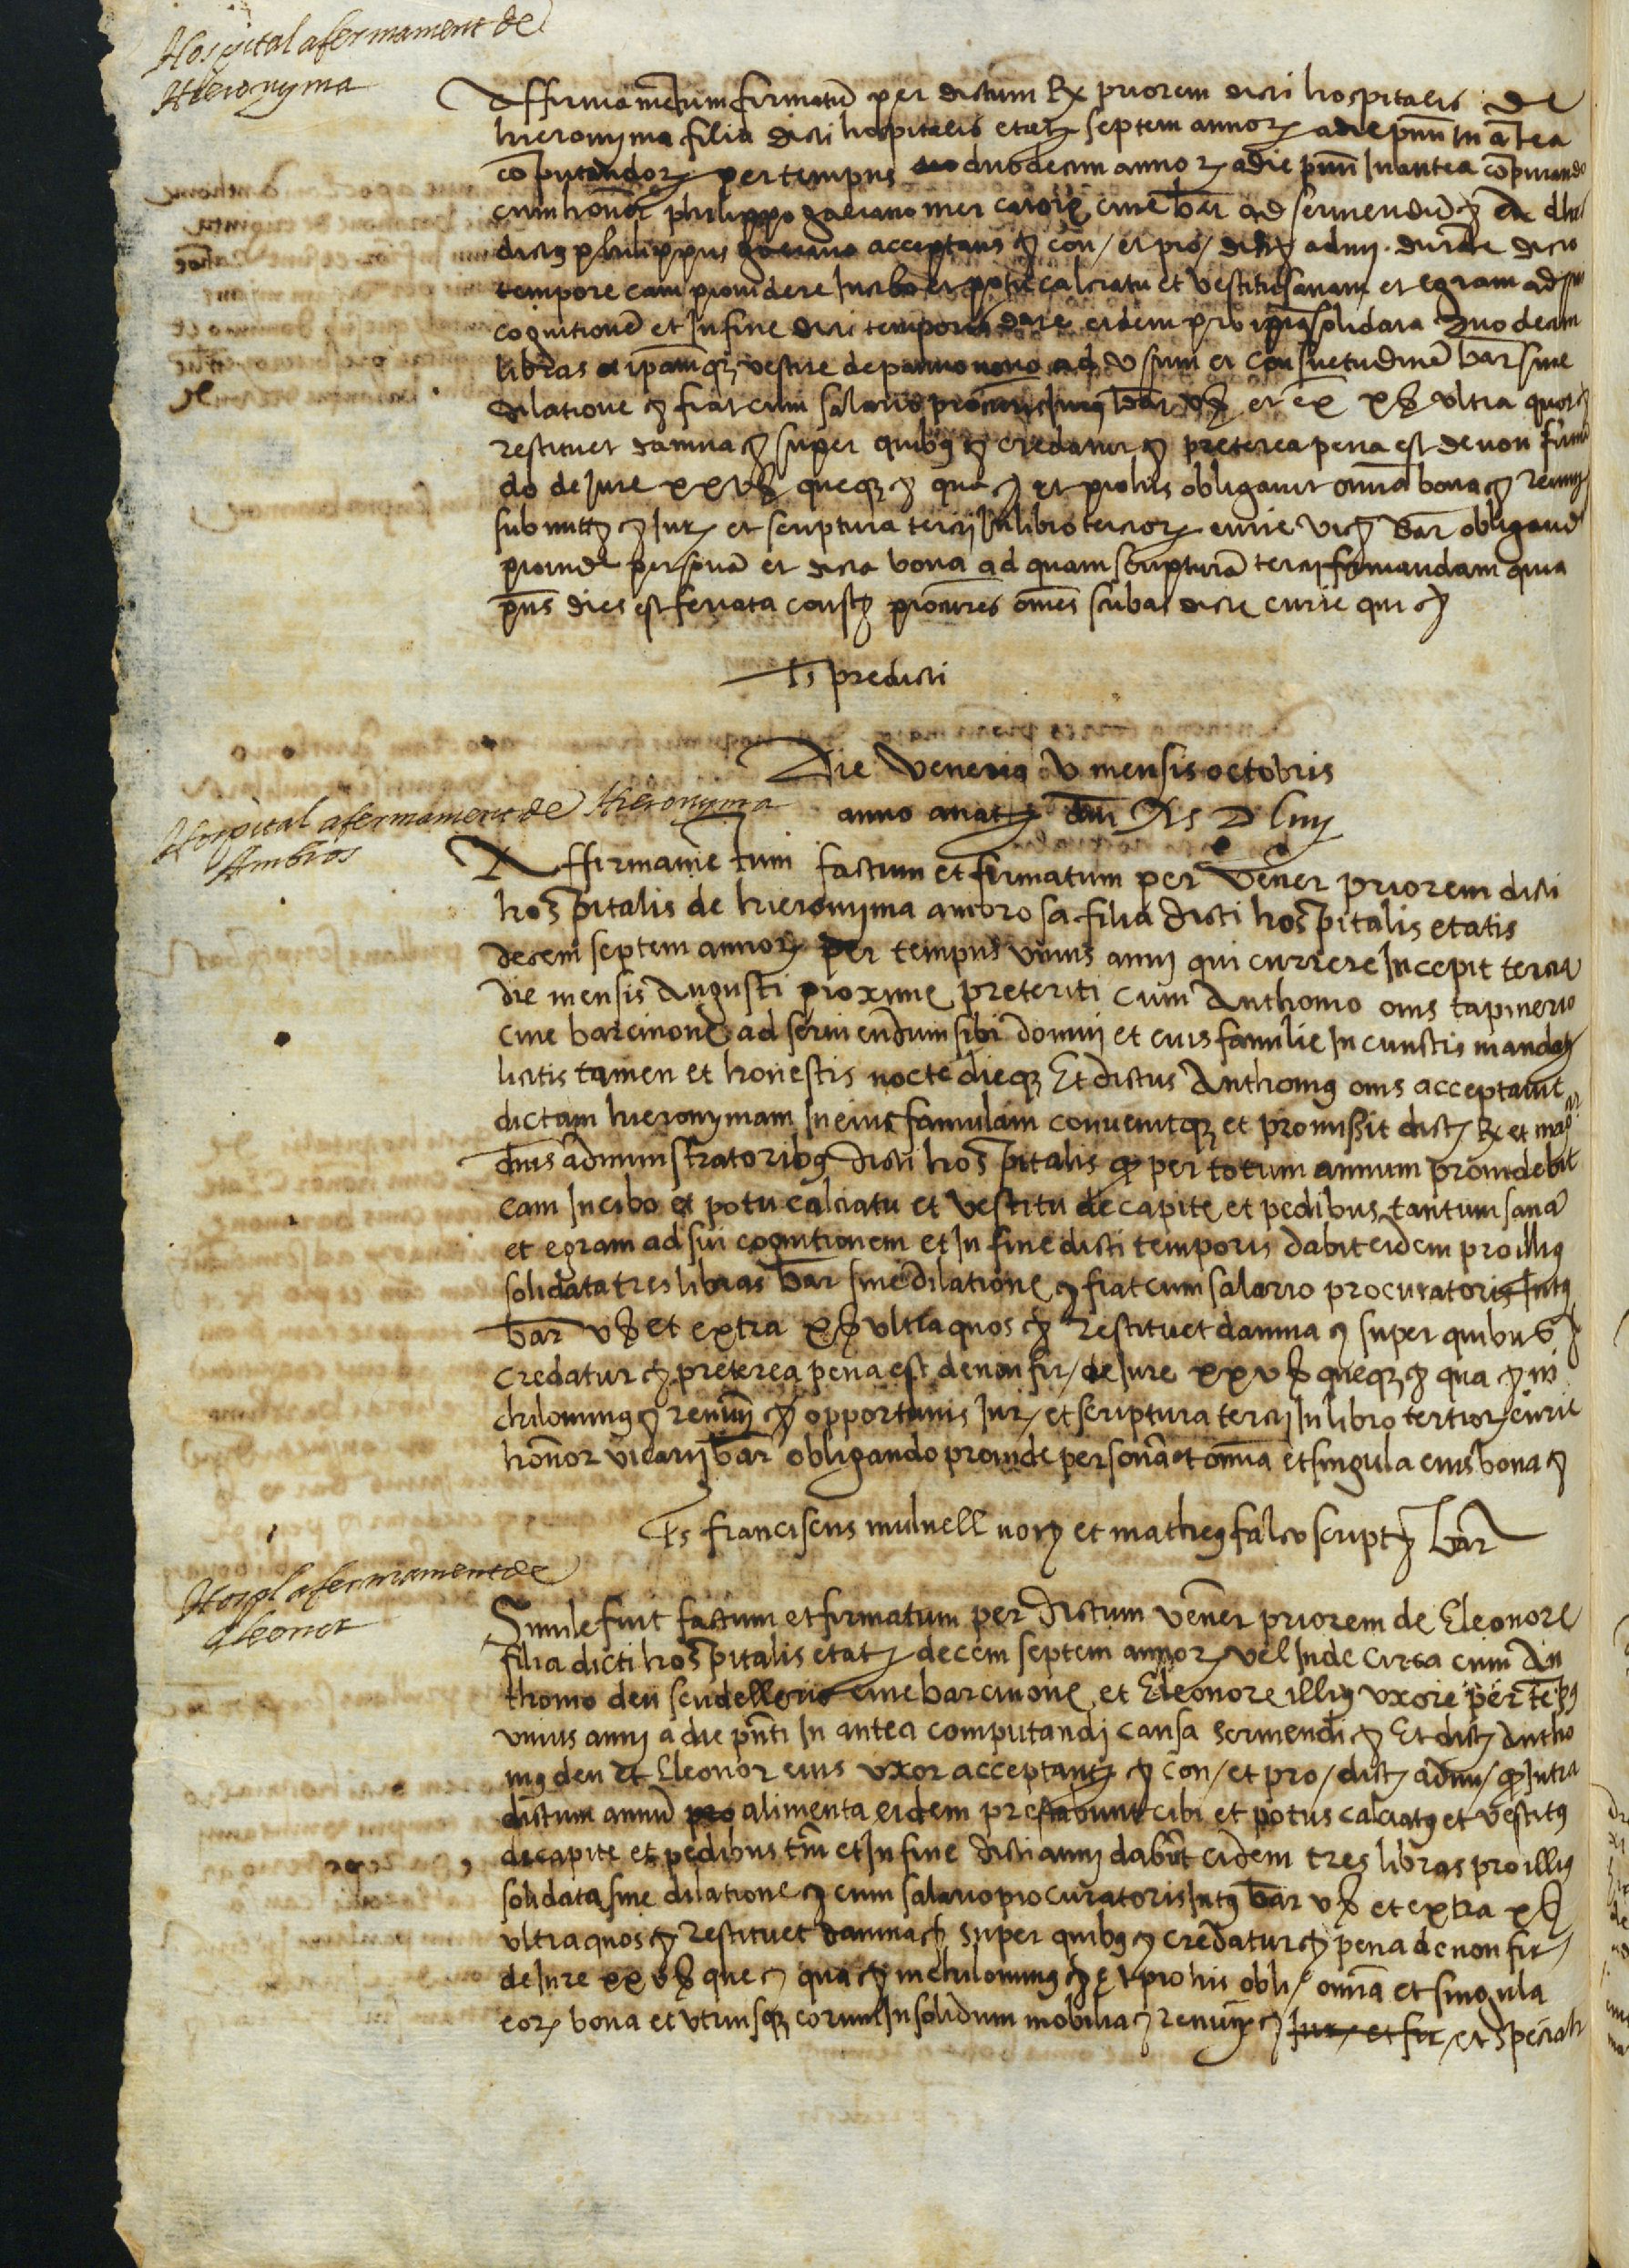 Hospital afermament de
Hieronyma
Affirmamentum firmatū per dictum Rx priorem dicti hospitalis de
hieronyma filia dicti hospitalis etatȝ septem annorȝ a die pñti in a tea
cōputandorȝ per tempus duodecim annorȝ a die pñti in antea cōputando
cum honor philippo gaerano mercatore cive bar ad serviendū ꝛc Et
dictus philippus acceptans ꝛc con/ et pro/ dictȝ admi. durāte dicto
tempore eam providere in cibo et potu calciatu et vestitu sanam et egram ad sui
cognitionē et in fine dicti temporis dare eidem pro ipsiꝰ solidata duodecim
libras et ipam qȝ vestire de panno novo ad ussum et consuetudinē bar sine
dilatione ꝛc fiat cum salario procuris intus bar vß et ex xß ultra quos ꝛc
restituet damna ꝛc super quibꝰ ꝛc credatur ꝛc preterea pena est de non firmā
do de jure xxvß queqȝ ꝛc qua ꝛc et pro his obligavit omia bona ꝛc renunȝ
submittȝ ꝛc Jurȝ et scriptura tercij in libro terciorȝ curie vicȝ bar obligand
proinde personā et dicta bona ad quam scripturā tercij firmandam quia
pñs dies est feriata constȝ procures omes scuba dicte curie qui ꝛc
Ts predicti
Die Veneris v mensis octobris
anno a natȝ dni Ms D Liiij
Hospital afermament de Hieronyma
Ambros
Affirmamētum factum et firmatum per Vener priorem dicti
hospitalis de hieronyma ambrosa filia dicti hospitalis etatis
decem septem annorȝ per tempus unius anni qui currere incepit tercia
die mensis Augusti proxime preteriti cum Anthonio oms tapinerio
cive barcinone ad serviendum sibi domui et eius familie in cunctis mandatȝ
licitis tamen et honestis nocte dieqȝ Et dictus Anthoniꝰ oms acceptavit
dictam hieronymam in eius famulam convenitqȝ et promissit dictȝ Rx et magcis
dnis administratoribꝰ dicti hospitalis qȝ per totum annum providebit
eam in cibo et potu calciatu et vestitu de capite et pedibus tantum sanā
et egram ad sui cognitionem et in fine dicti temporis dabit eidem pro illiꝰ
solidata tres libras bar sine dilatione ꝛc fiat cum salario procuratoris intꝰ
bar vß et extra xß ultra quos ꝛc restituet damna ꝛc super quibus ꝛc
credatur ꝛc preterea pena est de non fir/ de Jure xxvß queqȝ ꝛc qua ꝛc ni
chilominꝰ ꝛc renunȝ ꝛc opportunis Jurȝ et scriptura tercij in libro tertiorȝ curie
honor vicarij bar obligando proinde personā et omia et singula eius bona ꝛc
Ts franciscus mulnell norȝ et matheꝰ falco scriptȝ bar
Hospl afermament de
Eleonor
Simile fuit factum et firmatum per dictum vener priorem de Eleonore
filia dicti hospitalis etatȝ decem septem annorȝ vel inde circa cum An
thonio deu scudellerio cive barcinone et Eleonore illiꝰ uxore per tēpꝰ
unius anni a die pñti in antea computandi causa serviendi ꝛc Et dictȝ Antho
niꝰ deu et Eleonor eius uxor acceptantȝ ꝛc con/ et pro/ dictȝ admi/ qȝ intra
dictum annū alimenta eidem prestabunt cibi et potus calciatꝰ et vestitꝰ
de capite et pedibus tm et in fine dicti anni dabūt eidem tres libras pro illiꝰ
solidata sine dilatione ꝛc cum salario procuratoris intꝰ bar vß et extra xß
ultra quos ꝛc restituet damna ꝛc super quibꝰ ꝛc credatur ꝛc pena de non fir/
de Jure xxvß que ꝛc qua ꝛc nichilominꝰ ꝛc Et pro his obli/ omia et singula
eorȝ bona et utriusqȝ eorum in solidum mobilia ꝛc renunȝ ꝛc Jur/ et fir/ et speciali